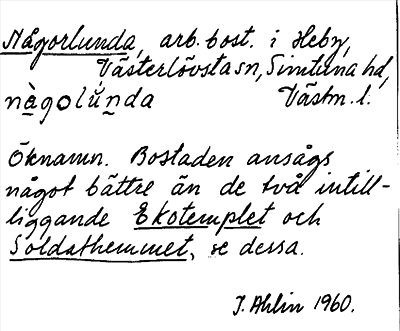 Någorlunda, arb.bost. i Heby,
Västerlövsta sn, Simtuna hd,
nàgolùnda Västm. l.
Öknamn. Bostaden ansågs
något bättre än de två intill-
liggande Ekotemplet och
Soldathemmet, se dessa.
J. Ahlin 1960.